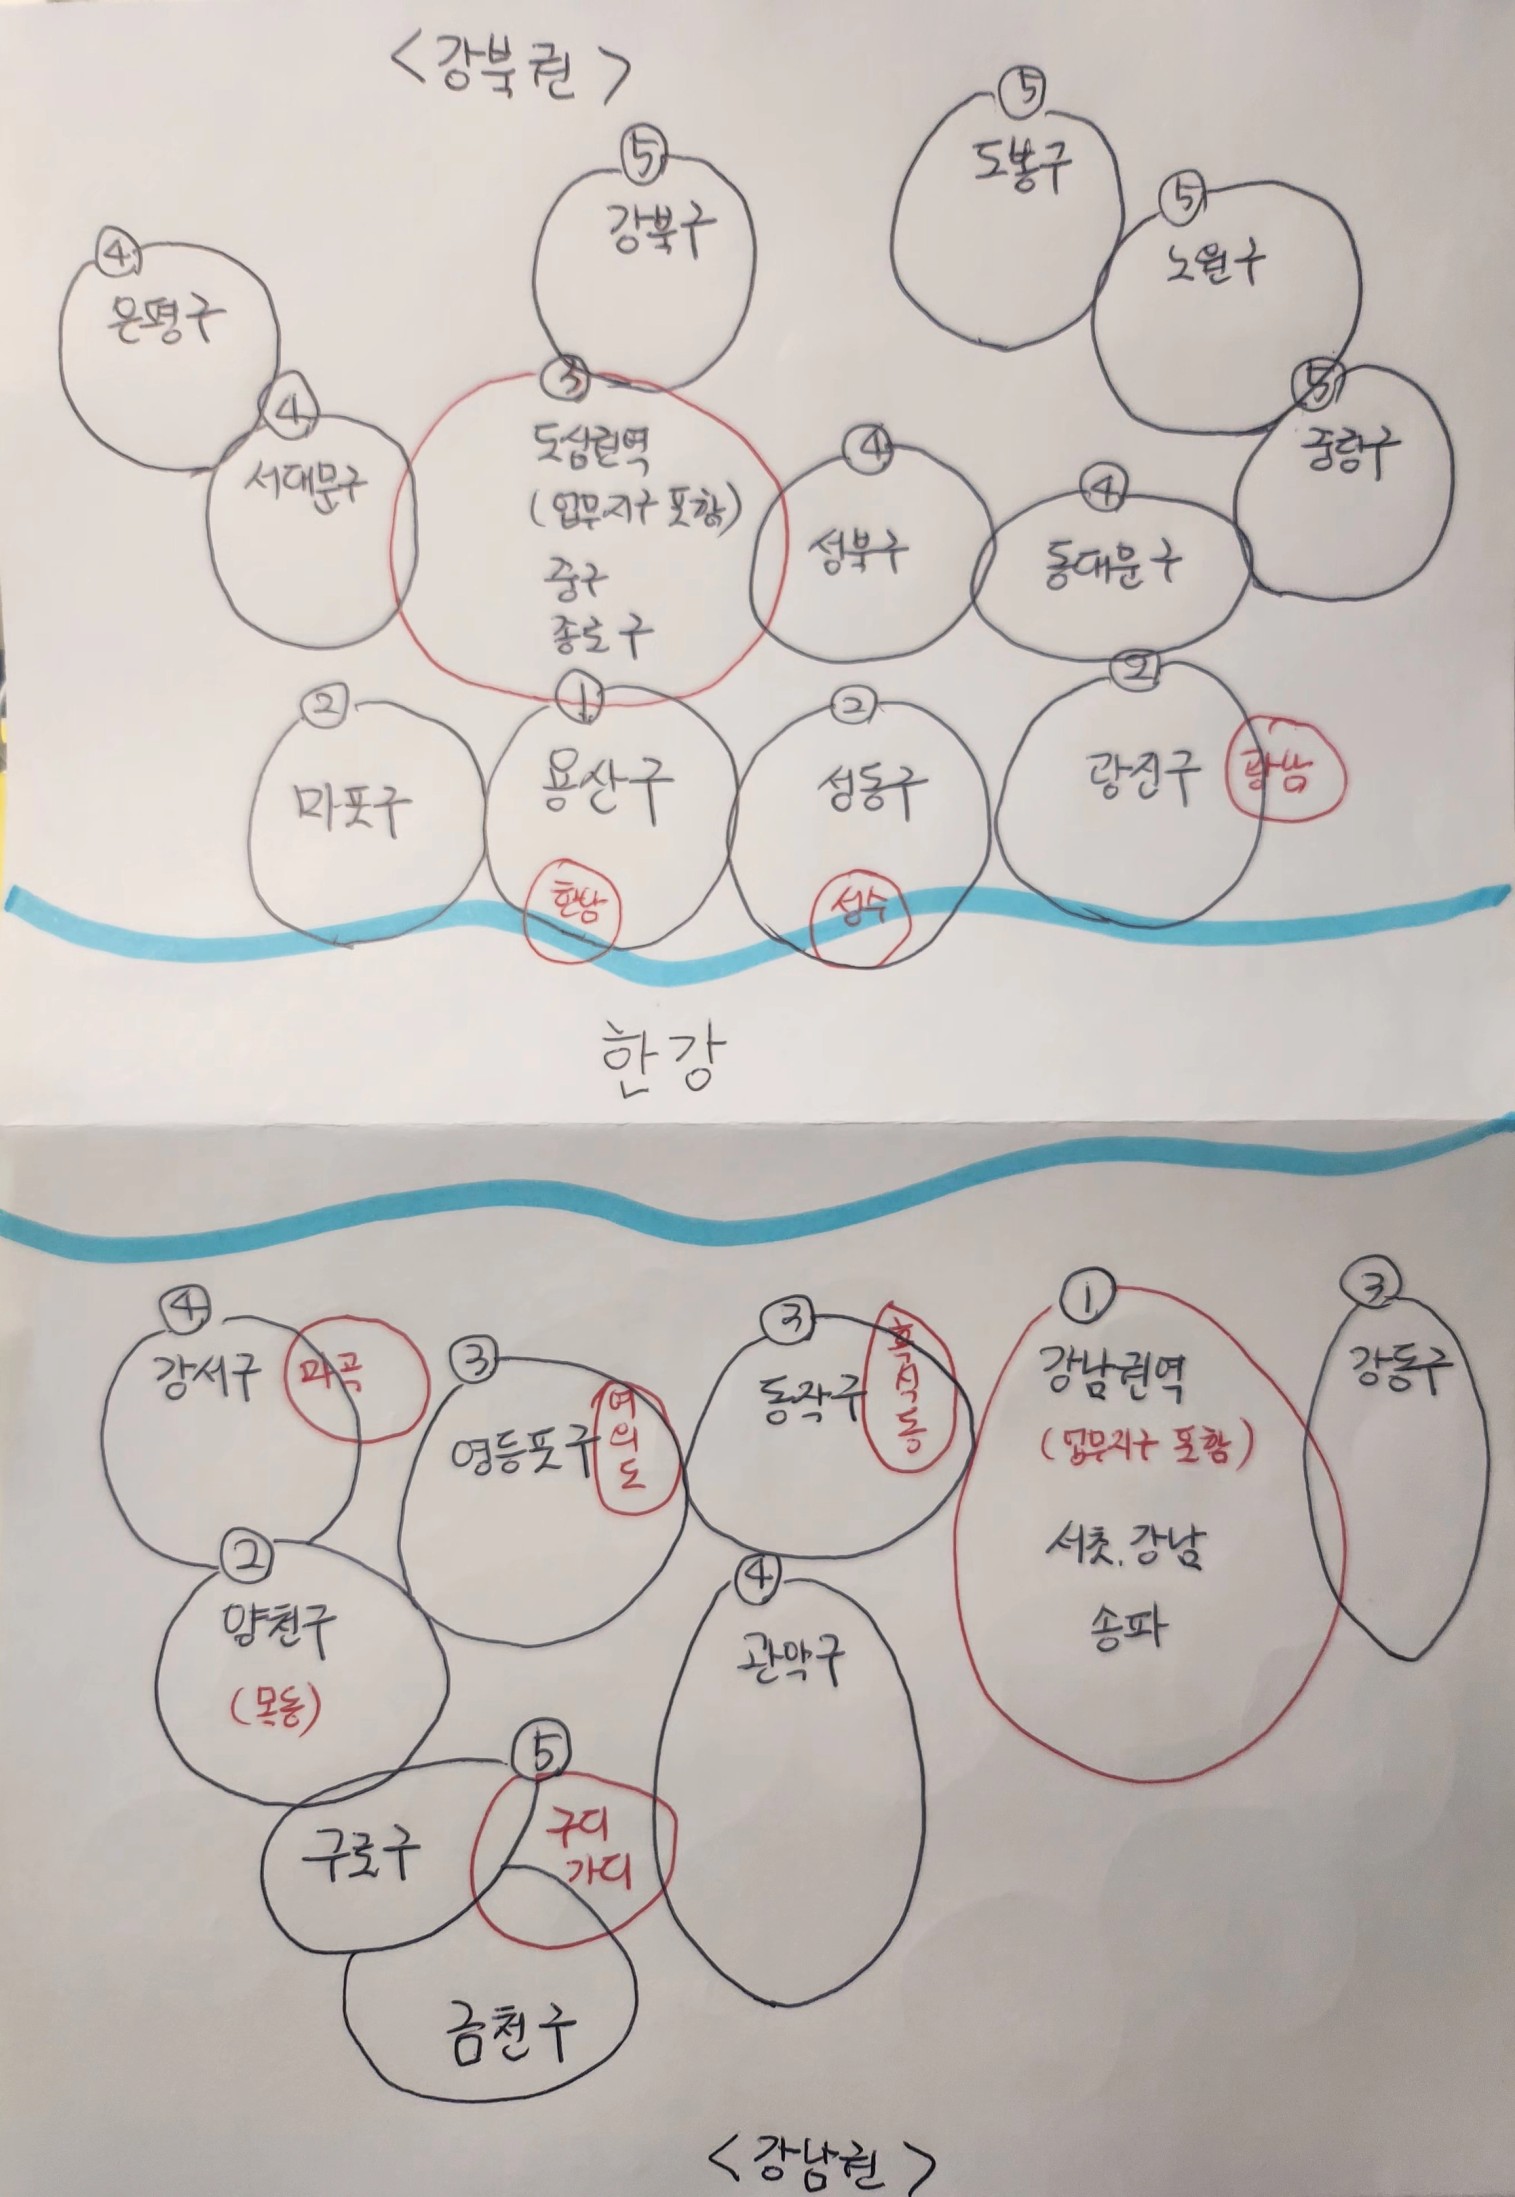 <강북권>
⑤
도봉구
⑤
강북구
⑤
노원구
④
은평구
④
서대문구
③
도심권역
(업무지구 포함)
중구
종로구
④
성북구
④
동대문구
⑤
중랑구
②
마포구
①
용산구
한남
②
성동구
성수
②
광진구
광남
한강
④
강서구
마곡
③
영등포구
여의도
③
동작구
흑석동
①
강남권역
(업무지구 포함)
서초. 강남
송파
③
강동구
②
양천구
(목동)
④
관악구
⑤
구로구
구디
가디
금천구
<강남권>